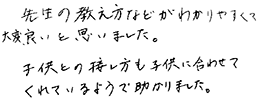 先生の教え方などがわかりやすくて
大変良いと思いました。
子供との接し方も子供に合わせて
くれているようで助かりました。